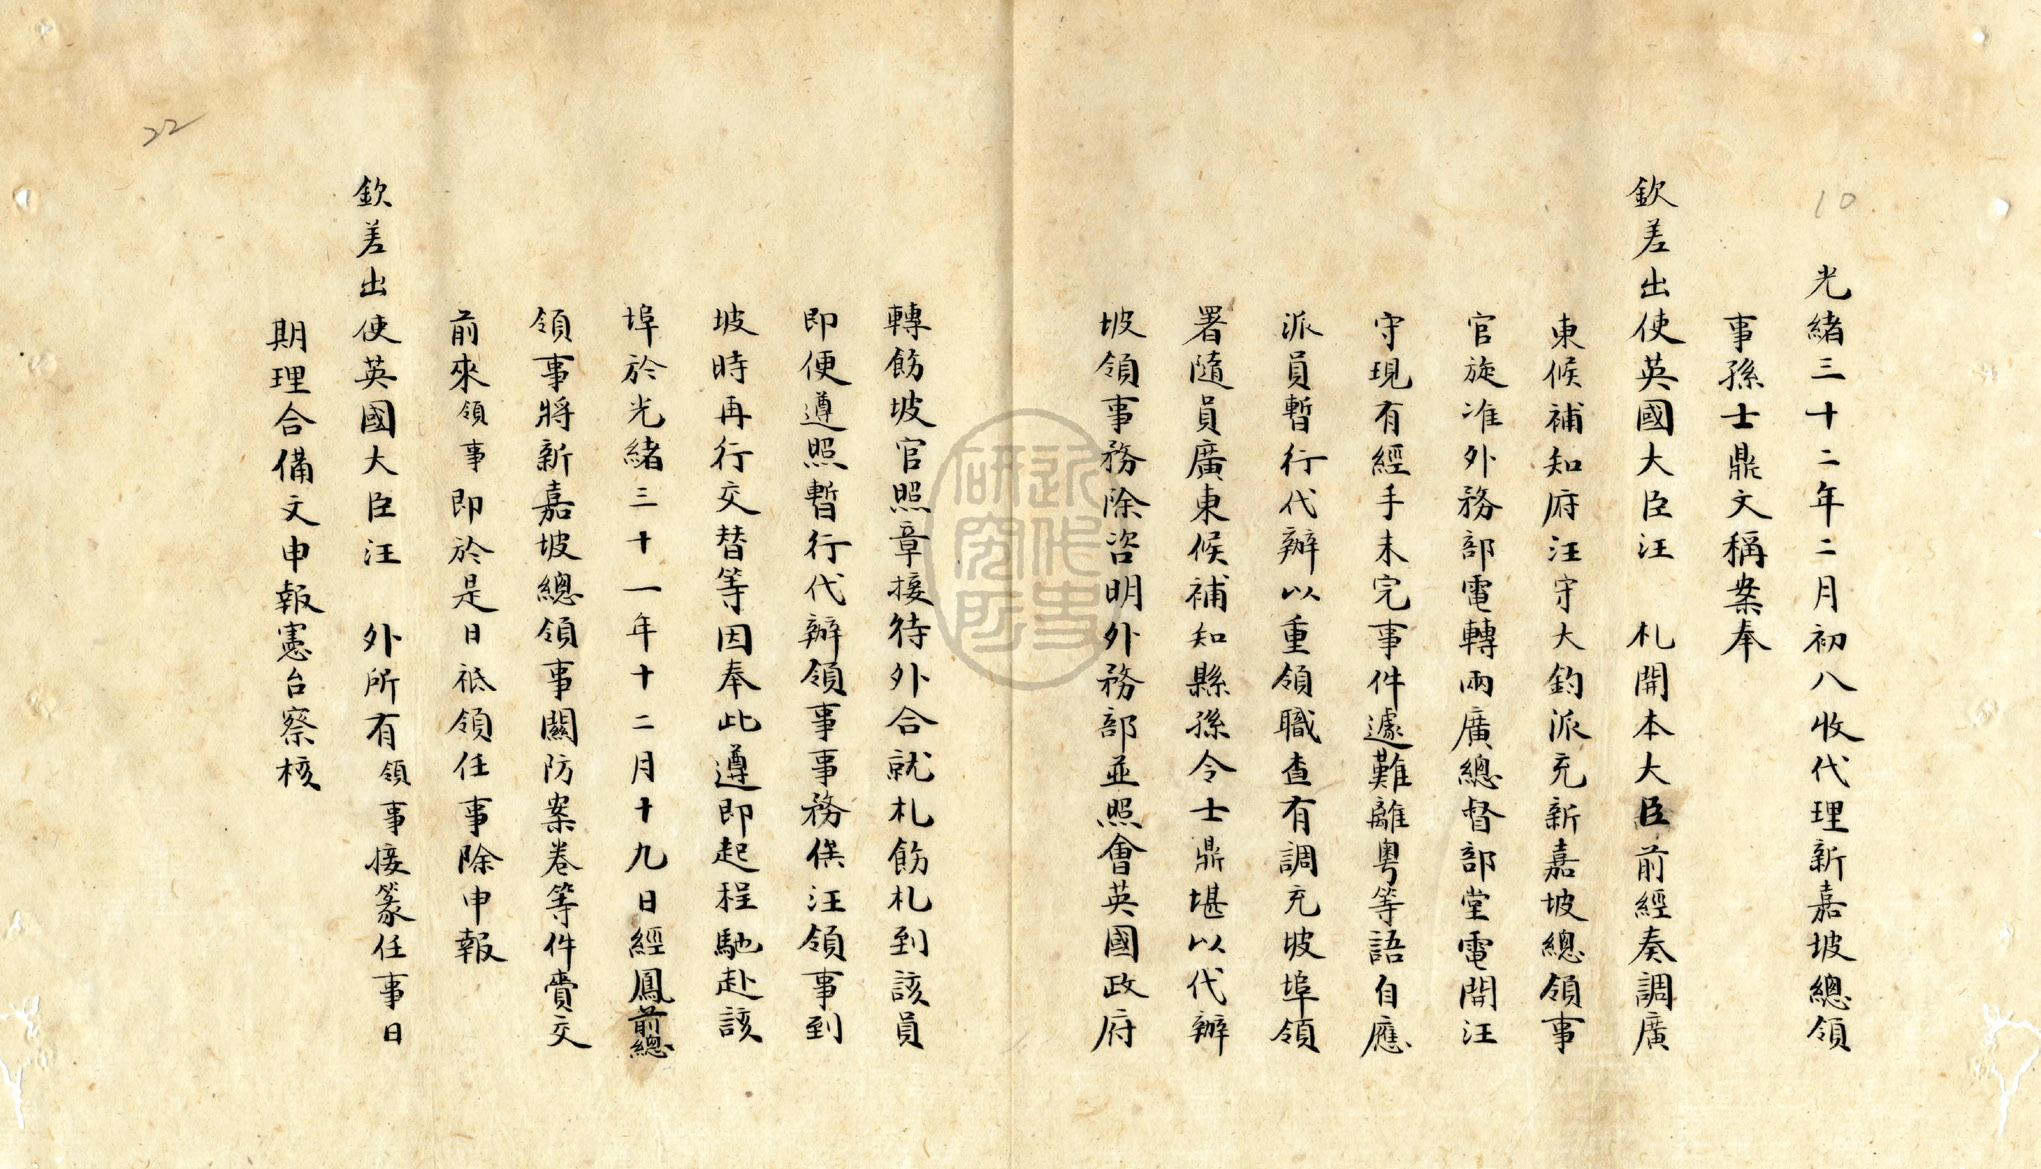 10
光緒三十二年二月初八收代理新嘉坡總領
事孫士鼎文稱案奉
欽差出使英國大臣汪 札開本大臣前經奏調廣
東候補知府汪守大鈞派充新嘉坡總領事
官旋准外務部電轉兩廣總督部堂電開汪
守現有經手未完事件遽難離粵等語自應
派員暫行代辦以重領職查有調充坡埠領
署隨員廣東候補知縣孫令士鼎堪以代辦
坡領事務除咨明外務部並照會英國政府
轉飭坡官照章接待外合就札飭札到該員
即便遵照暫行代辦領事事務俟汪領事到
坡時再行交替等因奉此遵即起程馳赴該
埠於光緒三十一年十二月十九日經鳳前總
領事將新嘉坡總領事關防案卷等件賫交
前來領事即於是日祗領任事除申報
欽差出使英國大臣汪 外所有領事接篆任事日
期理合備文申報憲台察核
22
近代史
研究所